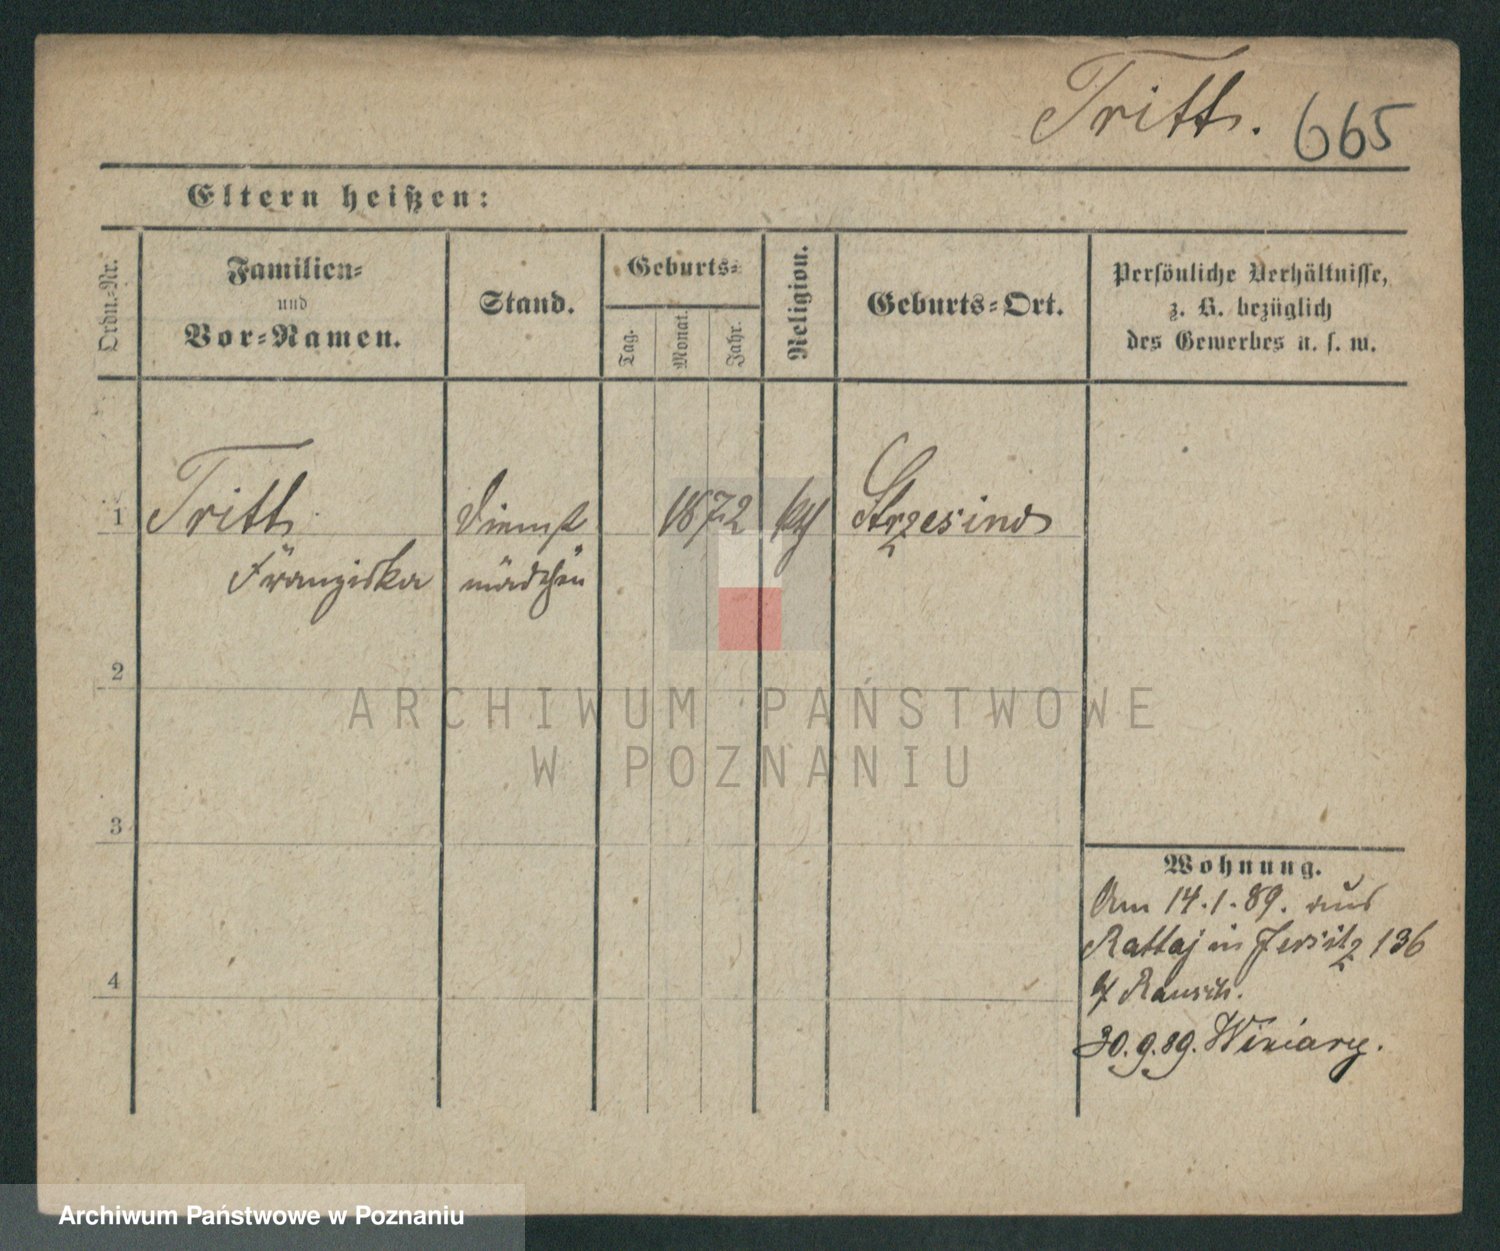 Tritt. 665
Eltern heißen:
Ordn.-Nr.
Familien-
und
Vor-Namen.
Stand.
Geburts-
Tag.
Monat.
Jahr.
Religion.
Geburts-Ort.
Persönliche Verhältnisse,
z. B. bezüglich
des Gewerbes u. s. w.
1 Tritt Dienst 1872 kth Strzesino
Franziska mädchen
2
3
4
Wohnung.
Am 14.1.89. aus
Rattaj in Jersitz 136
30.9.89. Winiary.
ARCHIWUM PAŃSTWOWE
W POZNANIU
Archiwum Państwowe w Poznaniu